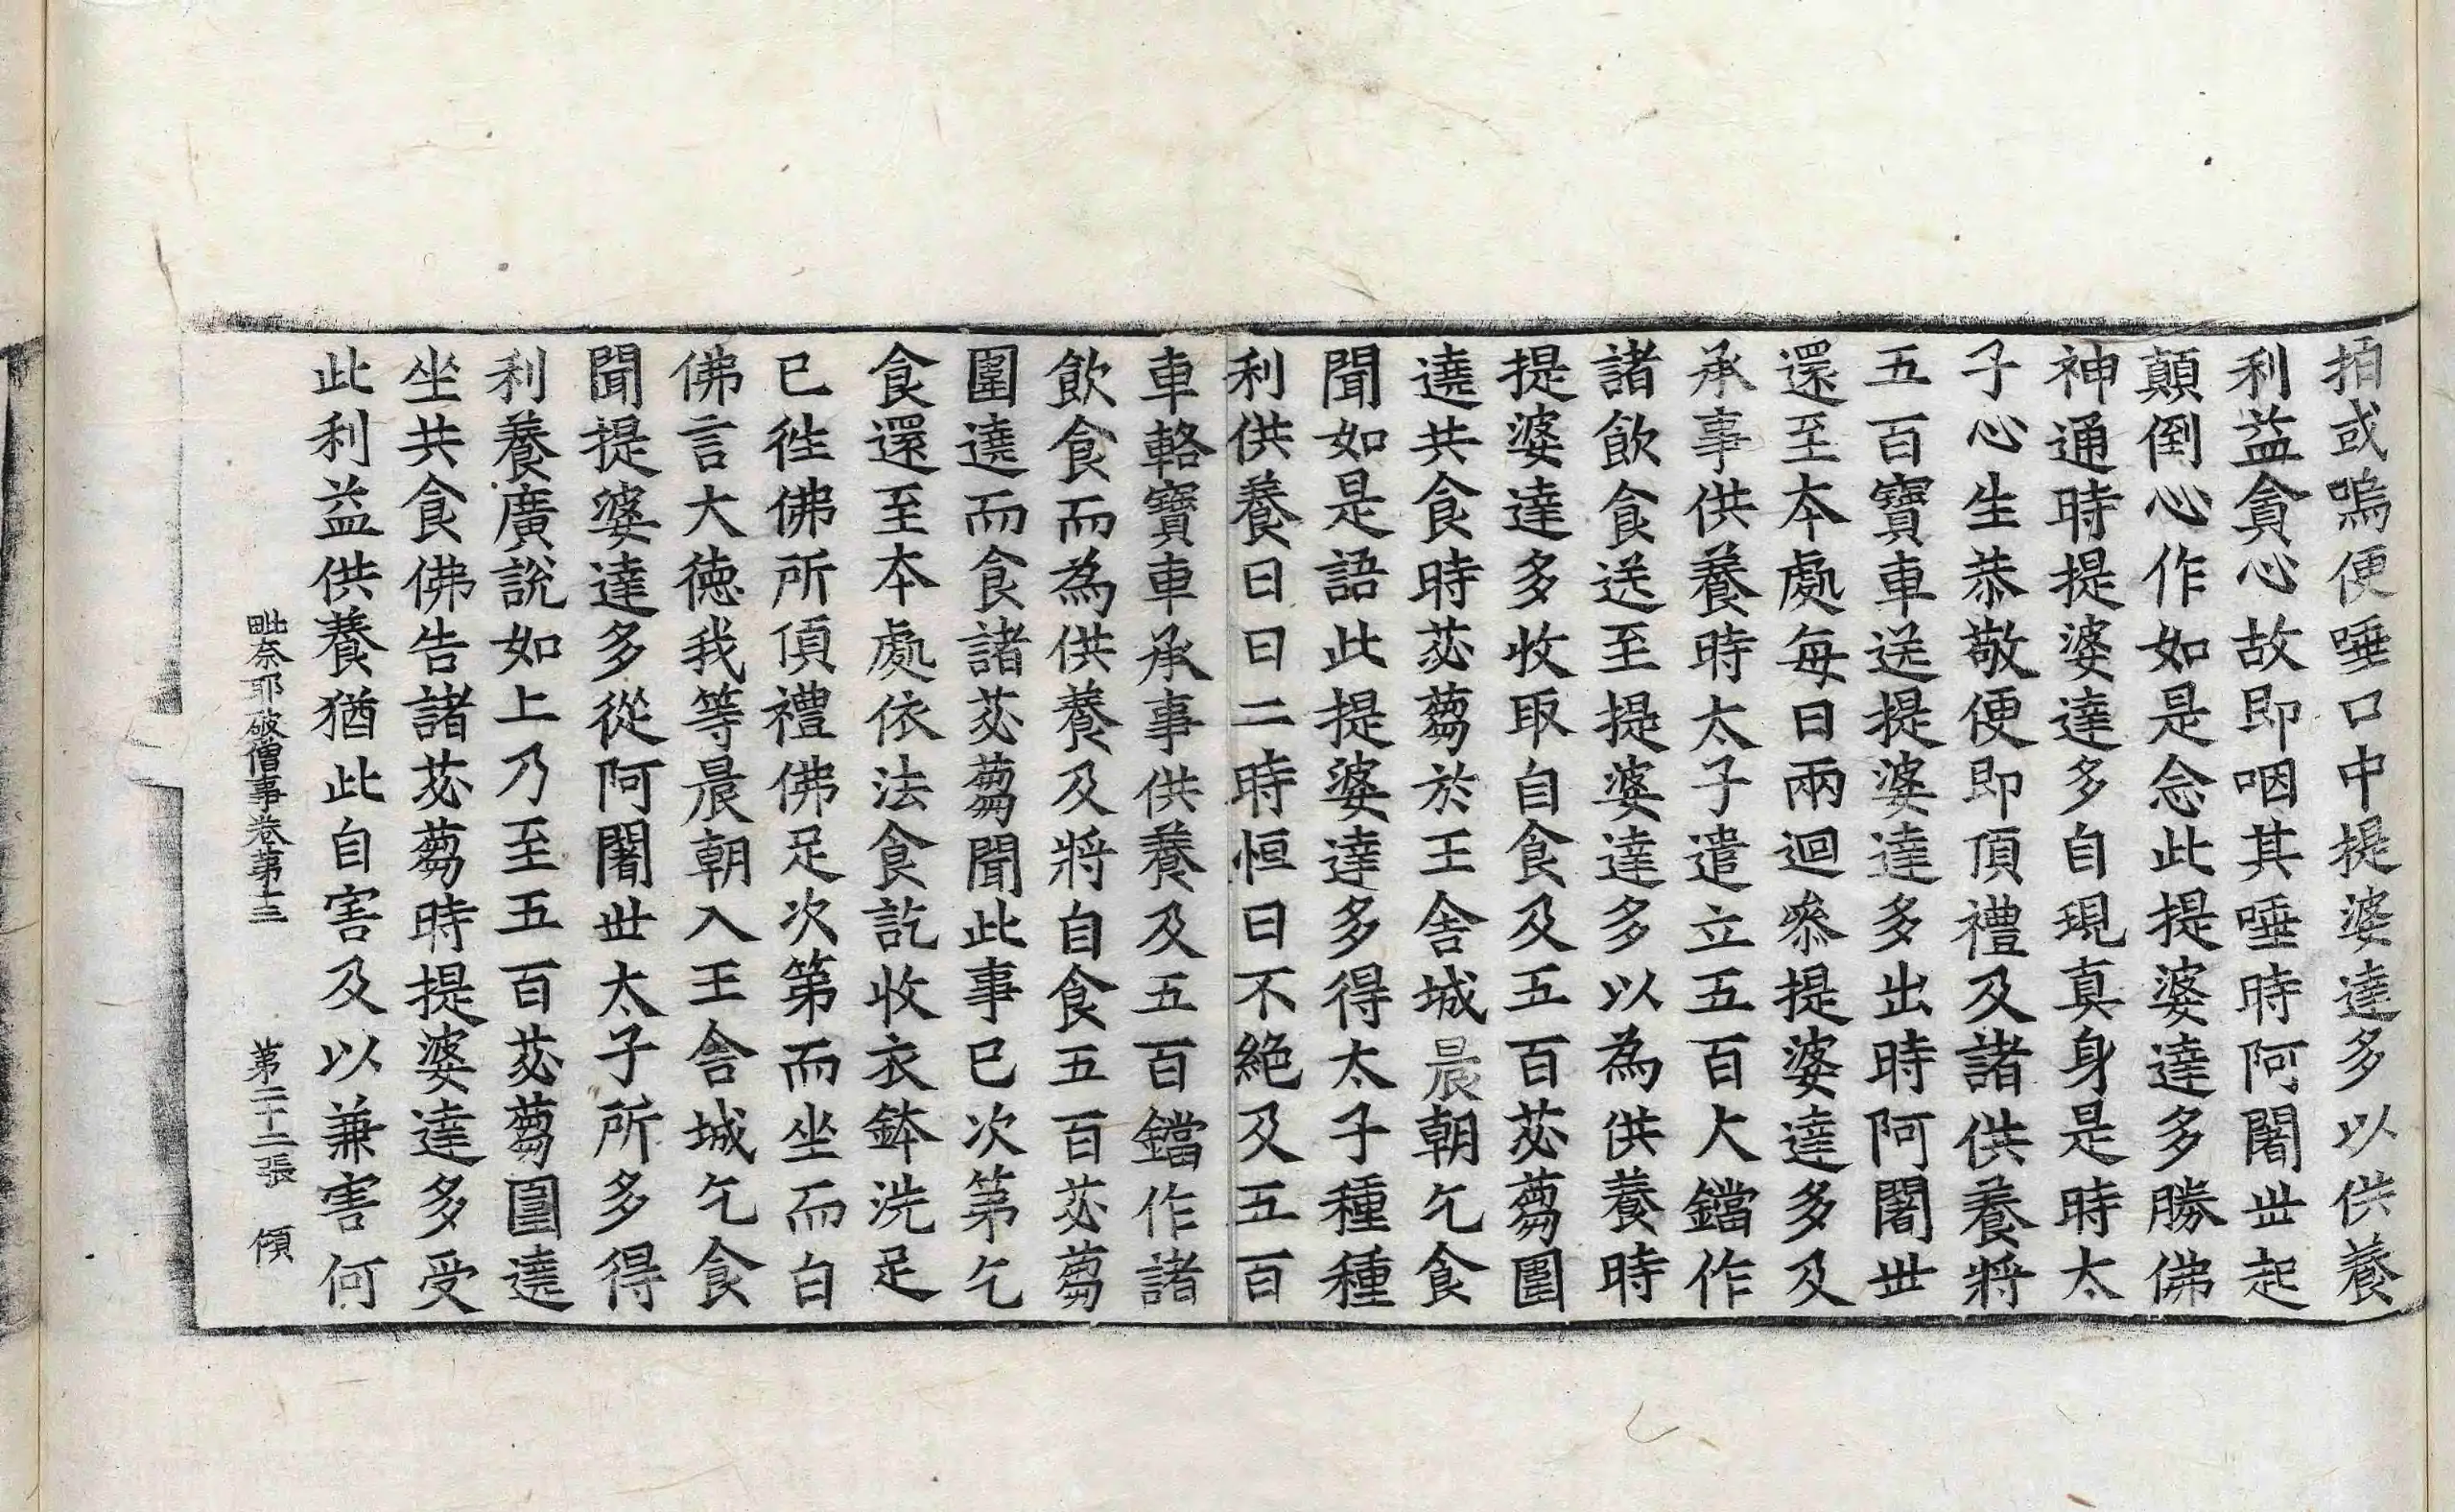 拍或嗚便唾口中提婆達多以供養
利益貪心故即咽其唾時阿闍世起
顛倒心作如是念此提婆達多勝佛
神通時提婆達多自現真身是時太
子心生恭敬便即頂禮及諸供養將
五百寶車送提婆達多出時阿闍世
還至本處每日兩迴叅提婆達多及
承事供養時太子遣立五百大鐺作
諸飲食送至提婆達多以為供養時
提婆達多收取自食及五百苾蒭圍
遶共食時苾蒭於王舍城晨朝乞食
聞如是語此提婆達多得太子種種
利供養日日二時恒日不絕及五百
車輅寶車承事供養及五百鐺作諸
飲食而為供養及將自食五百苾蒭
圍遶而食諸苾蒭聞此事已次第乞
食還至本處依法食訖收衣鉢洗足
已徃佛所頂禮佛足次第而坐而白
佛言大徳我等晨朝入王舍城乞食
聞提婆達多從阿闍世太子所多得
利養廣說如上乃至五百苾蒭圍遶
坐共食佛告諸苾蒭時提婆達多受
此利益供養猶此自害及以兼害何
毗奈耶破僧事卷第十三　第二十二張　傾